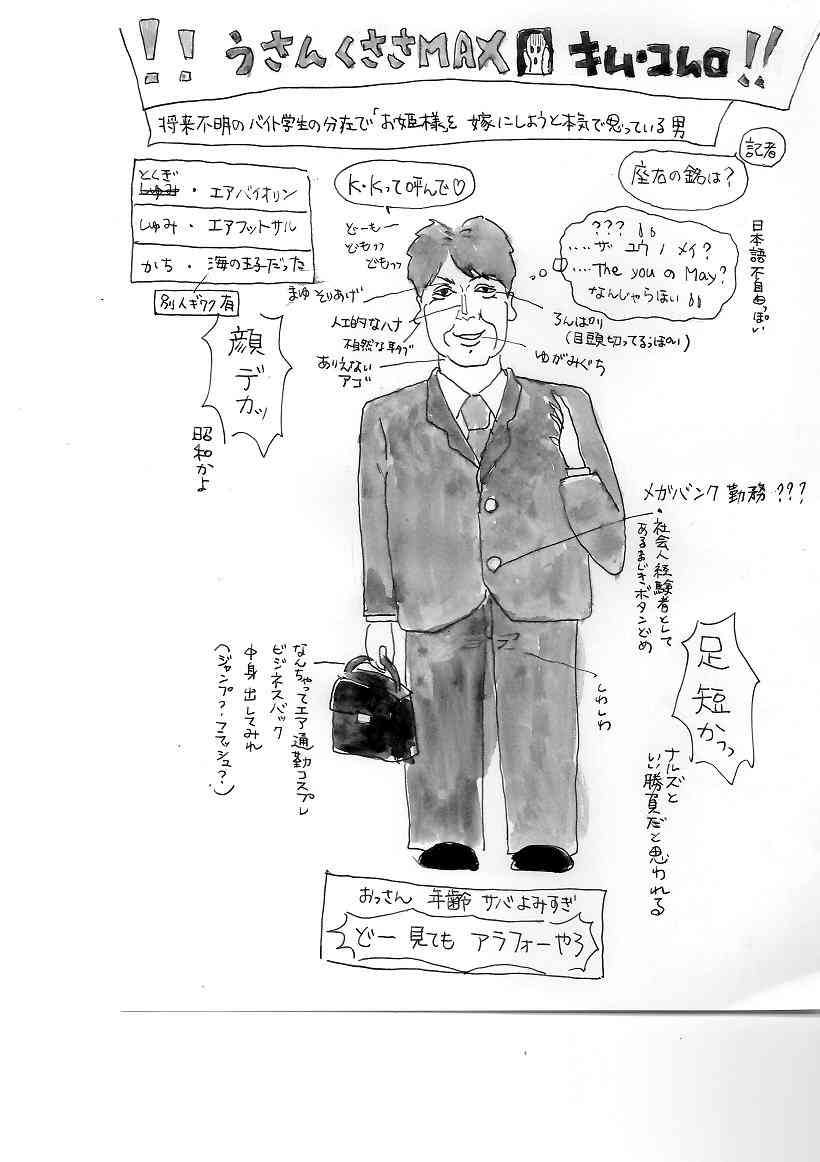 !! うさんくささMAX キム・コムロ !!
将来不明のバイト学生の分在で「お姫様」を嫁にしようと本気で思っている男
記者
座右の銘は?
K・Kって呼んで♡
とくぎ
しゅみ・エアバイオリン
しゅみ・エアフットサル
かち・海の王子だった
別人ギワク有
どーも
どもっっ
どもっっ
???
....ザ ユウ ノ メイ?
....The you の May?
なんじゃらほい
日本語不自由っぽい
まゆそりあげ
人工的なハナ
不自然な耳タブ
ありえない
アゴ
ろんぱり
(目頭切ってるっぽい)
ゆがみぐち
顔デカッ
昭和かよ
メガバンク勤務???
・社会人経験者として
あるまじきボタンどめ
足短かっっ
ナルズと
いい勝負だと思われる
しわしわ
なんちゃってエア通勤コスプレ
ビジネスバック
中身出してみれ
(ジャンプ?・フラッシュ?)
おっさん 年齢 サバよみすぎ
どー見ても アラフォーやろ